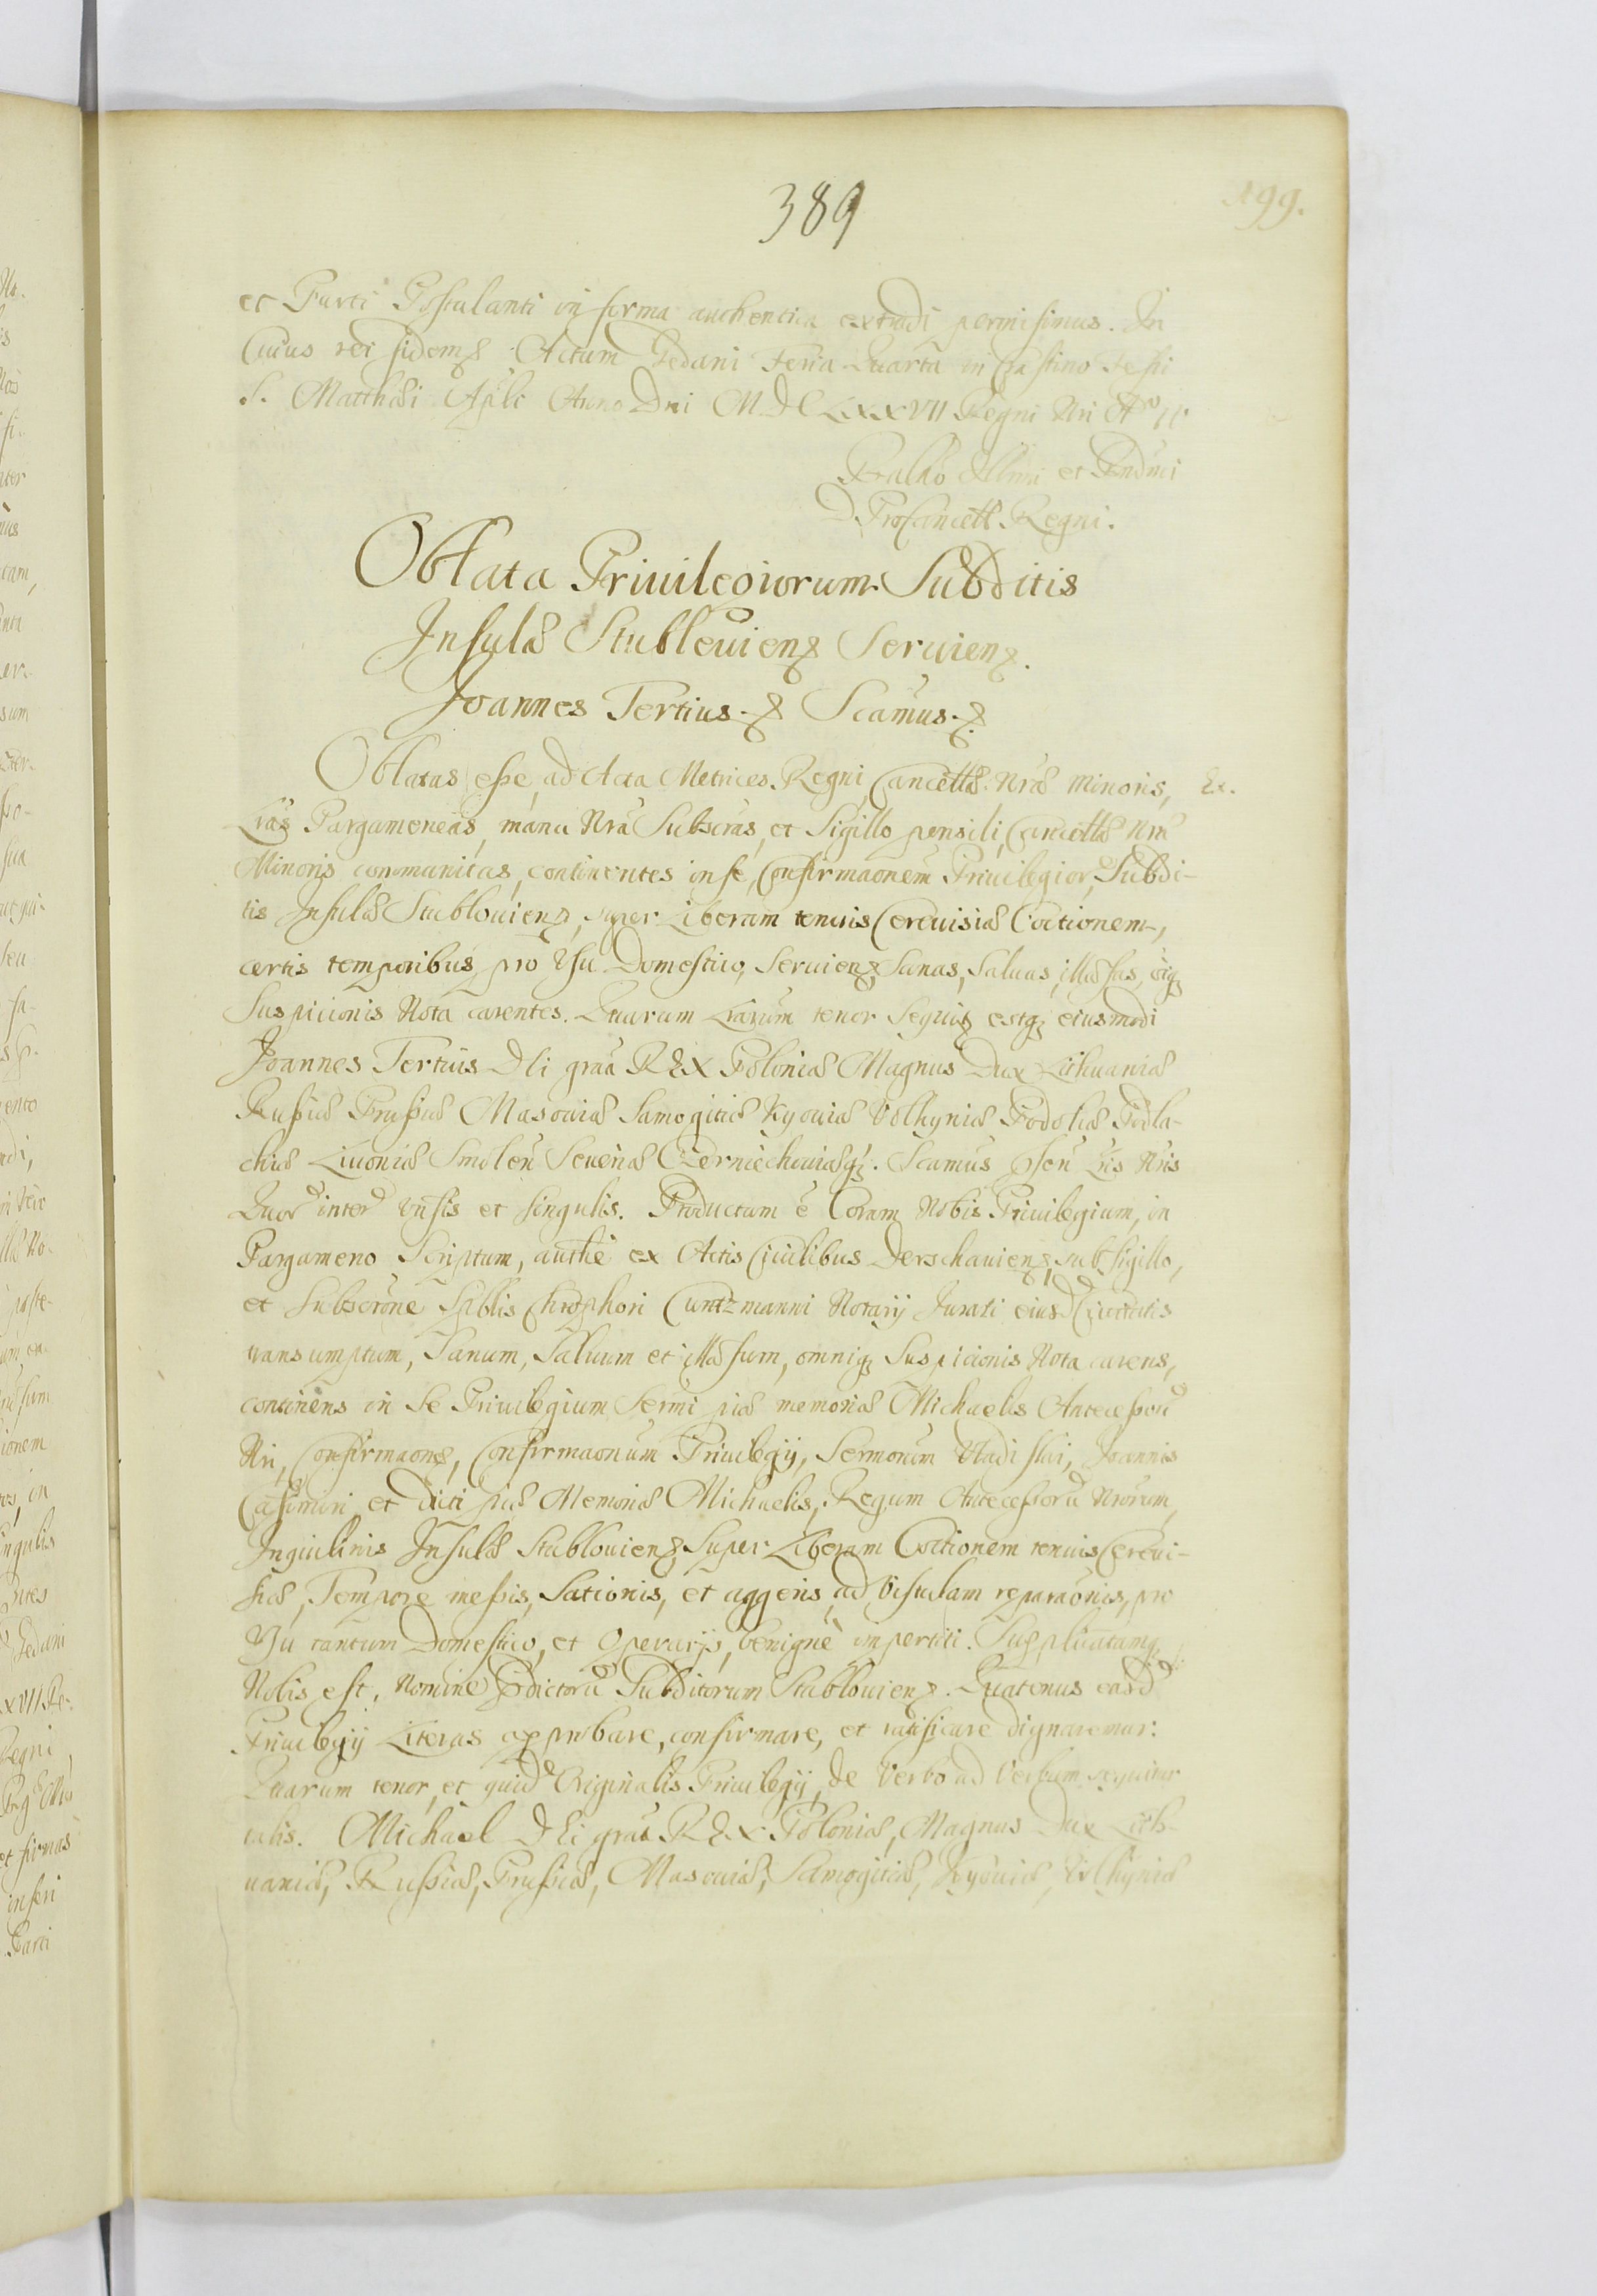 389
199.
et Parti Postulanti in forma authentica extradi permisimus. In
Cuius rei fidem Actum Gedani Feria Quarta in Crastino Festi
S. Matthæi Apli Anno Dni M.DCLXXVII Regni Nri
Illmi et Rndmi
D. Procancell. Regni.
Oblata Priuilegiorum Subditis
Insulæ Stubleuien Seruien.
Joannes Tertius Scamus
Oblatas esse, ad Acta Metrices Regni Cancellæ Nræ Minoris,
Ex.
Lras Pargameneas, manu Nra Subscras, et Sigillo pensili, Cancellæ Nræ
Minoris communitas, continentes in se, Confirmaonem Priuilegior, Subdi-
tis Insulæ Stublouien, super Liberam tenuis Cereuisiæ Coctionem,
certis temporibus, pro Vsu Domestico, Seruien, Sanas, Saluas, illæsas, oiq
Suspicionis Nota carentes. Quarum Lrarum tenor Sequit estq eiusmodi
Joannes Tertius DEi graa REX Poloniæ Magnus Dux Lithuaniæ
Russiæ Prussiæ Masouiæ Samogitiæ Kyouiæ Volhyniæ Podoliæ Podla-
chiæ Liuoniæ Smolen Seueriæ Czerniechouiæq. Scamus psen Lris Nris
Quor interē vnsis et singulis. Productum ē Coram Nobis Priuilegium, in
Pargameno Scriptum, authē ex Actis Ciuilibus Derschauien, sub sigillo,
et Subscrone Spblis Chrophori Cuntzmanni Notarij Jurati eiusd Ciuitatis
transumptum, Sanum, Saluum et illæsum, omniq Suspicionis Nota carens,
continens in Se Priuilegium Sermi piæ memoriæ Michaelis Antecessoris
Nri, Confirmaons, Confirmaonum Priuilegij, Sermorum Vladislai, Joannis
Casimiri, et dicti piæ Memoriæ Michaelis, Regum Antecessorū Nrorum,
Inquilinis Insulæ Stublouien, Super Liberam Coctionem tenuis Cereui-
siæ, Tempore messis, Sationis, et aggeris, ad Vistulam reparaonis, pro
Vsu tantum Domestico, et Operarijs, benignè impertiti. Supplicatumq
Nobis est, Nomine pdictorū Subditorum Stublouien. Quatenus easd
Priuilegij Literas approbare, confirmare, et ratificare dignaremur:
Quarum tenor, et quidē Originalis Priuilegij, de Verbo ad Verbum sequitur
talis. Michael DEi graa REX Poloniæ, Magnus Dux Lith-
uaniæ, Russiæ, Prussiæ, Masouiæ, Samogitiæ, Kyouiæ, Volhyniæ